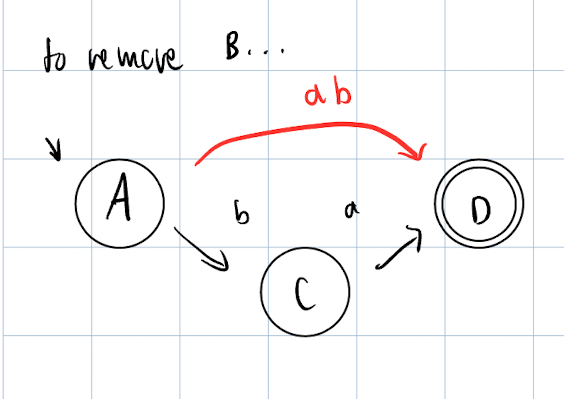 to remove B...
ab
A
b
a
D
C